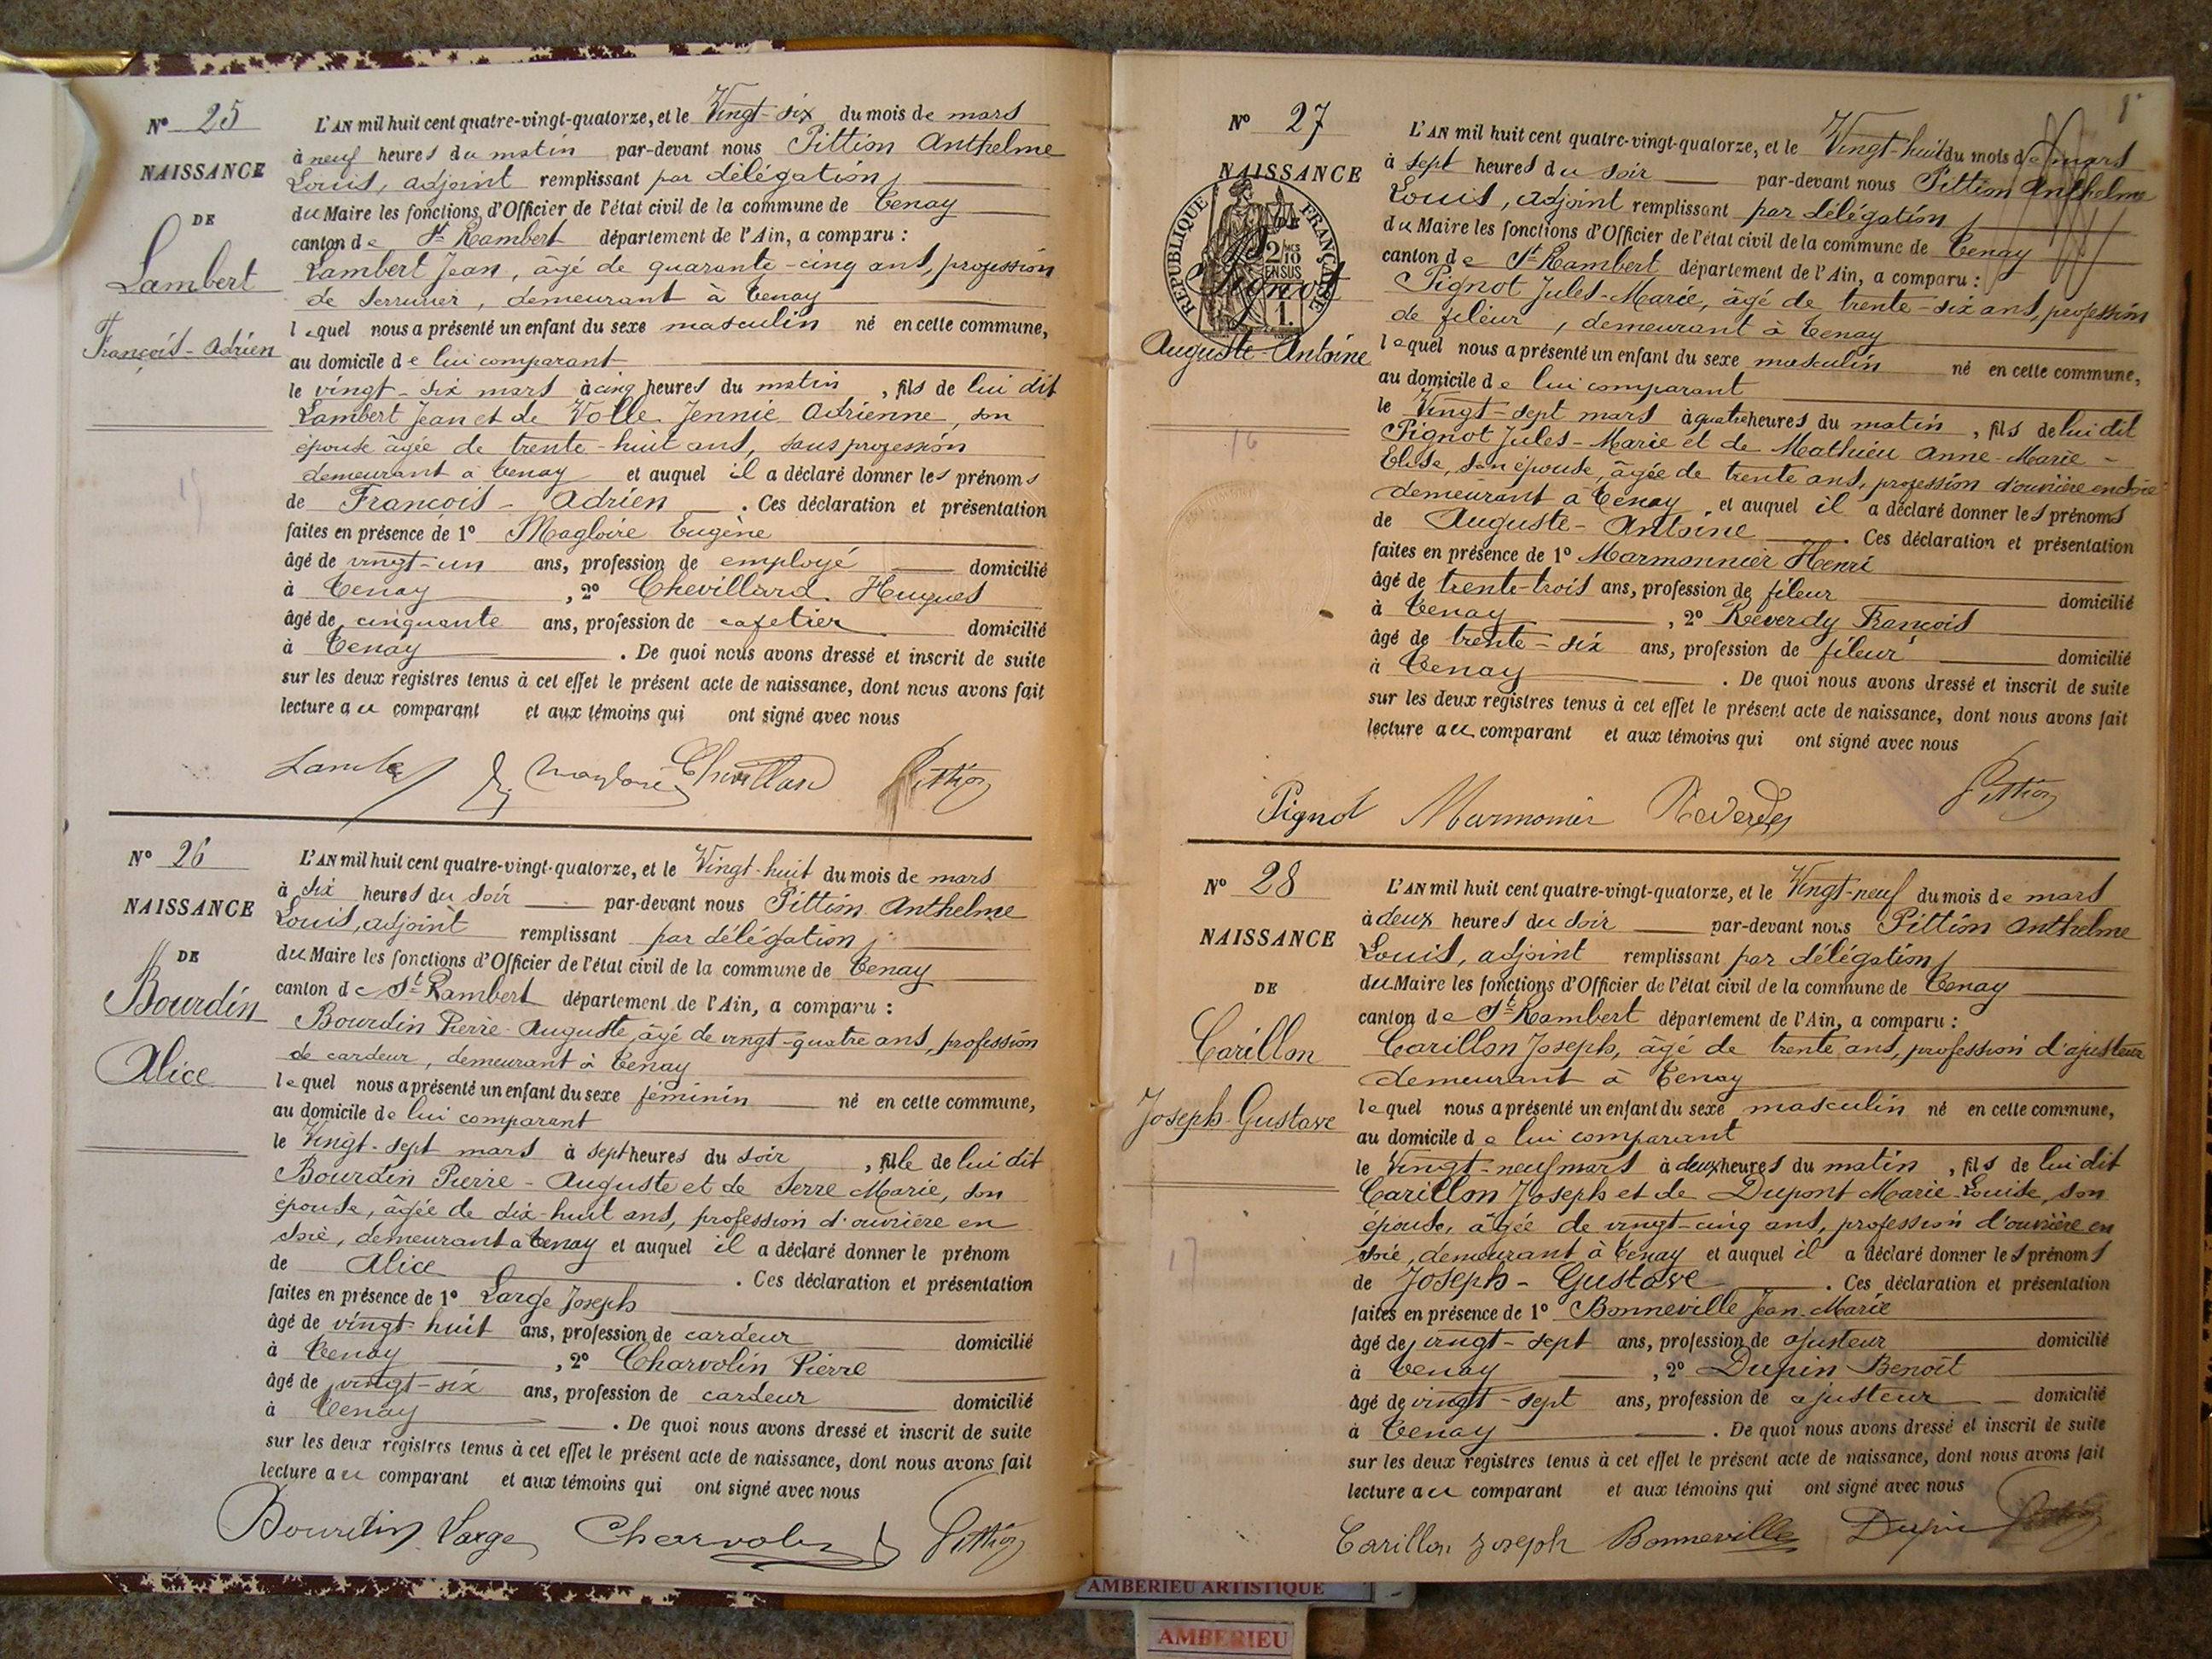 N° 25
NAISSANCE
DE
Lambert
François-Adrien
L'AN mil huit cent quatre-vingt-quatorze, et le Vingt-six du mois de mars
à neuf heures du matin par-devant nous Pittion Anthelme
Louis, adjoint remplissant par délégation
du Maire les fonctions d'Officier de l'état civil de la commune de Tenay
canton de St Rambert département de l'Ain, a comparu :
Lambert Jean, âgé de quarante-cinq ans, profession
de serrurier, demeurant à Tenay
lequel nous a présenté un enfant du sexe masculin né en cette commune,
au domicile de lui comparant
le vingt-six mars à cinq heures du matin, fils de lui dit
Lambert Jean et de Volle Jennie Adrienne, son
épouse âgée de trente-huit ans, sans profession
demeurant à Tenay et auquel il a déclaré donner les prénoms
de François-Adrien. Ces déclaration et présentation
faites en présence de 1° Magloire Eugène
âgé de vingt-un ans, profession de employé domicilié
à Tenay, 2° Chevillard Hugues
âgé de cinquante ans, profession de cafetier domicilié
à Tenay. De quoi nous avons dressé et inscrit de suite
sur les deux registres tenus à cet effet le présent acte de naissance, dont nous avons fait
lecture au comparant et aux témoins qui ont signé avec nous
Pittion
N° 26
NAISSANCE
DE
Bourdin
Alice
L'AN mil huit cent quatre-vingt-quatorze, et le Vingt-huit du mois de mars
à six heures du soir par-devant nous Pittion Anthelme
Louis, adjoint remplissant par délégation
du Maire les fonctions d'Officier de l'état civil de la commune de Tenay
canton de St Rambert département de l'Ain, a comparu :
Bourdin Pierre-Auguste, âgé de vingt-quatre ans, profession
de cardeur, demeurant à Tenay
lequel nous a présenté un enfant du sexe féminin né en cette commune,
au domicile de lui comparant
le Vingt-sept mars à sept heures du soir, fille de lui dit
Bourdin Pierre-Auguste et de Serre Marie, son
épouse, âgée de dix-huit ans, profession d'ouvrière en
soie, demeurant à Tenay et auquel il a déclaré donner le prénom
de Alice. Ces déclaration et présentation
faites en présence de 1° Large Joseph
âgé de vingt-huit ans, profession de cardeur domicilié
à Tenay, 2° Charvolin Pierre
âgé de vingt-six ans, profession de cardeur domicilié
à Tenay. De quoi nous avons dressé et inscrit de suite
sur les deux registres tenus à cet effet le présent acte de naissance, dont nous avons fait
lecture au comparant et aux témoins qui ont signé avec nous
Bourdin Large Charvolin Pittion
N° 27
NAISSANCE
DE
Pignot
Auguste-Antoine
RÉPUBLIQUE FRANÇAISE
2/10 EN SUS
1.
16
L'AN mil huit cent quatre-vingt-quatorze, et le Vingt-huit du mois de mars
à sept heures du soir par-devant nous Pittion Anthelme
Louis, adjoint remplissant par délégation
du Maire les fonctions d'Officier de l'état civil de la commune de Tenay
canton de St Rambert département de l'Ain, a comparu :
Pignot Jules-Marie, âgé de trente-six ans, profession
de fileur, demeurant à Tenay
lequel nous a présenté un enfant du sexe masculin né en cette commune,
au domicile de lui comparant
le Vingt-sept mars à quatre heures du matin, fils de lui dit
Pignot Jules-Marie et de Mathieu Anne-Marie-
Elise, son épouse, âgée de trente ans, profession d'ouvrière en soie
demeurant à Tenay et auquel il a déclaré donner les prénoms
de Auguste-Antoine. Ces déclaration et présentation
faites en présence de 1° Marmonnier Henri
âgé de trente-trois ans, profession de fileur domicilié
à Tenay, 2° Reverdy François
âgé de trente-six ans, profession de fileur domicilié
à Tenay. De quoi nous avons dressé et inscrit de suite
sur les deux registres tenus à cet effet le présent acte de naissance, dont nous avons fait
lecture au comparant et aux témoins qui ont signé avec nous
Pignot Marmonier Reverdy Pittion
N° 28
NAISSANCE
DE
Carillon
Joseph-Gustave
17
L'AN mil huit cent quatre-vingt-quatorze, et le Vingt-neuf du mois de mars
à deux heures du soir par-devant nous Pittion Anthelme
Louis, adjoint remplissant par délégation
du Maire les fonctions d'Officier de l'état civil de la commune de Tenay
canton de St Rambert département de l'Ain, a comparu :
Carillon Joseph, âgé de trente ans, profession d'ajusteur
demeurant à Tenay
lequel nous a présenté un enfant du sexe masculin né en cette commune,
au domicile de lui comparant
le Vingt-neuf mars à deux heures du matin, fils de lui dit
Carillon Joseph et de Dupont Marie-Louise, son
épouse, âgée de vingt-cinq ans, profession d'ouvrière en
soie, demeurant à Tenay et auquel il a déclaré donner les prénoms
de Joseph-Gustave. Ces déclaration et présentation
faites en présence de 1° Bonneville Jean-Marie
âgé de vingt-sept ans, profession de ajusteur domicilié
à Tenay, 2° Dupin Benoît
âgé de vingt-sept ans, profession de ajusteur domicilié
à Tenay. De quoi nous avons dressé et inscrit de suite
sur les deux registres tenus à cet effet le présent acte de naissance, dont nous avons fait
lecture au comparant et aux témoins qui ont signé avec nous
Carillon Joseph Bonneville Dupin
AMBERIEU ARTISTIQUE
AMBERIEU